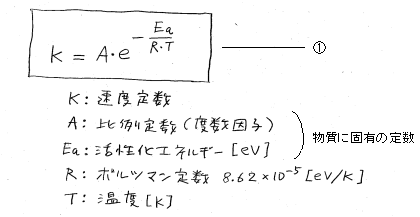 K = A・e^{-Ea/(R・T)} ①
K: 速度定数
A: 比例定数 (度数因子)
Ea: 活性化エネルギー [eV]
物質に固有の定数
R: ボルツマン定数 8.62×10⁻⁵ [eV/K]
T: 温度 [K]